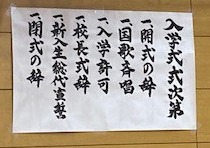 入学式式次第
一、開式の辞
一、国歌斉唱
一、入学許可
一、校長式辞
一、新入生総代宣誓
一、閉式の辞